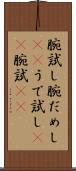 腕試し腕だめし
うで試し
腕試